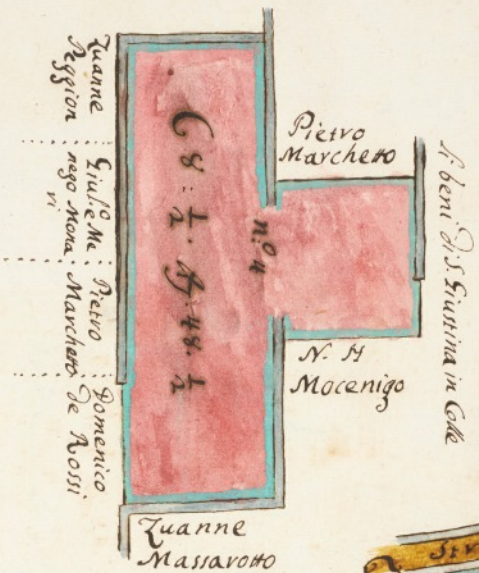 Zuanne
Reggion
Giul.e Ma
nego Mora
vi
Pietro
Marcheto
Domenico
de Rossi
C 8 : 1/2 . 48 . 1/2
n.o 4
Pietro
Marcheto
N. H
Mocenigo
Li beni di S. Giustina in Colle
Zuanne
Massarotto